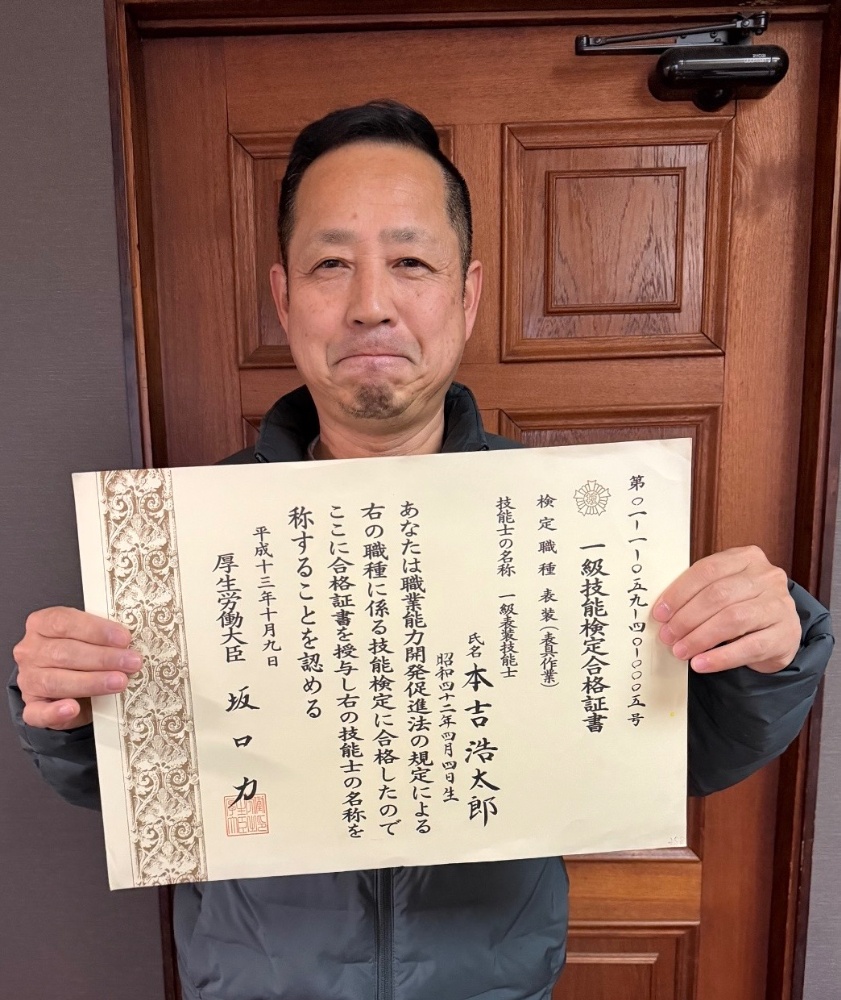 第〇一一-一-〇五九-四〇-〇〇〇五号
一級技能検定合格証書
検定職種 表装(表具作業)
技能士の名称 一級表装技能士
氏名 本吉浩太郎
昭和四十二年四月四日生
あなたは職業能力開発促進法の規定による
右の職種に係る技能検定に合格したので
ここに合格証書を授与し右の技能士の名称を
称することを認める
平成十三年十月九日
厚生労働大臣 坂口力